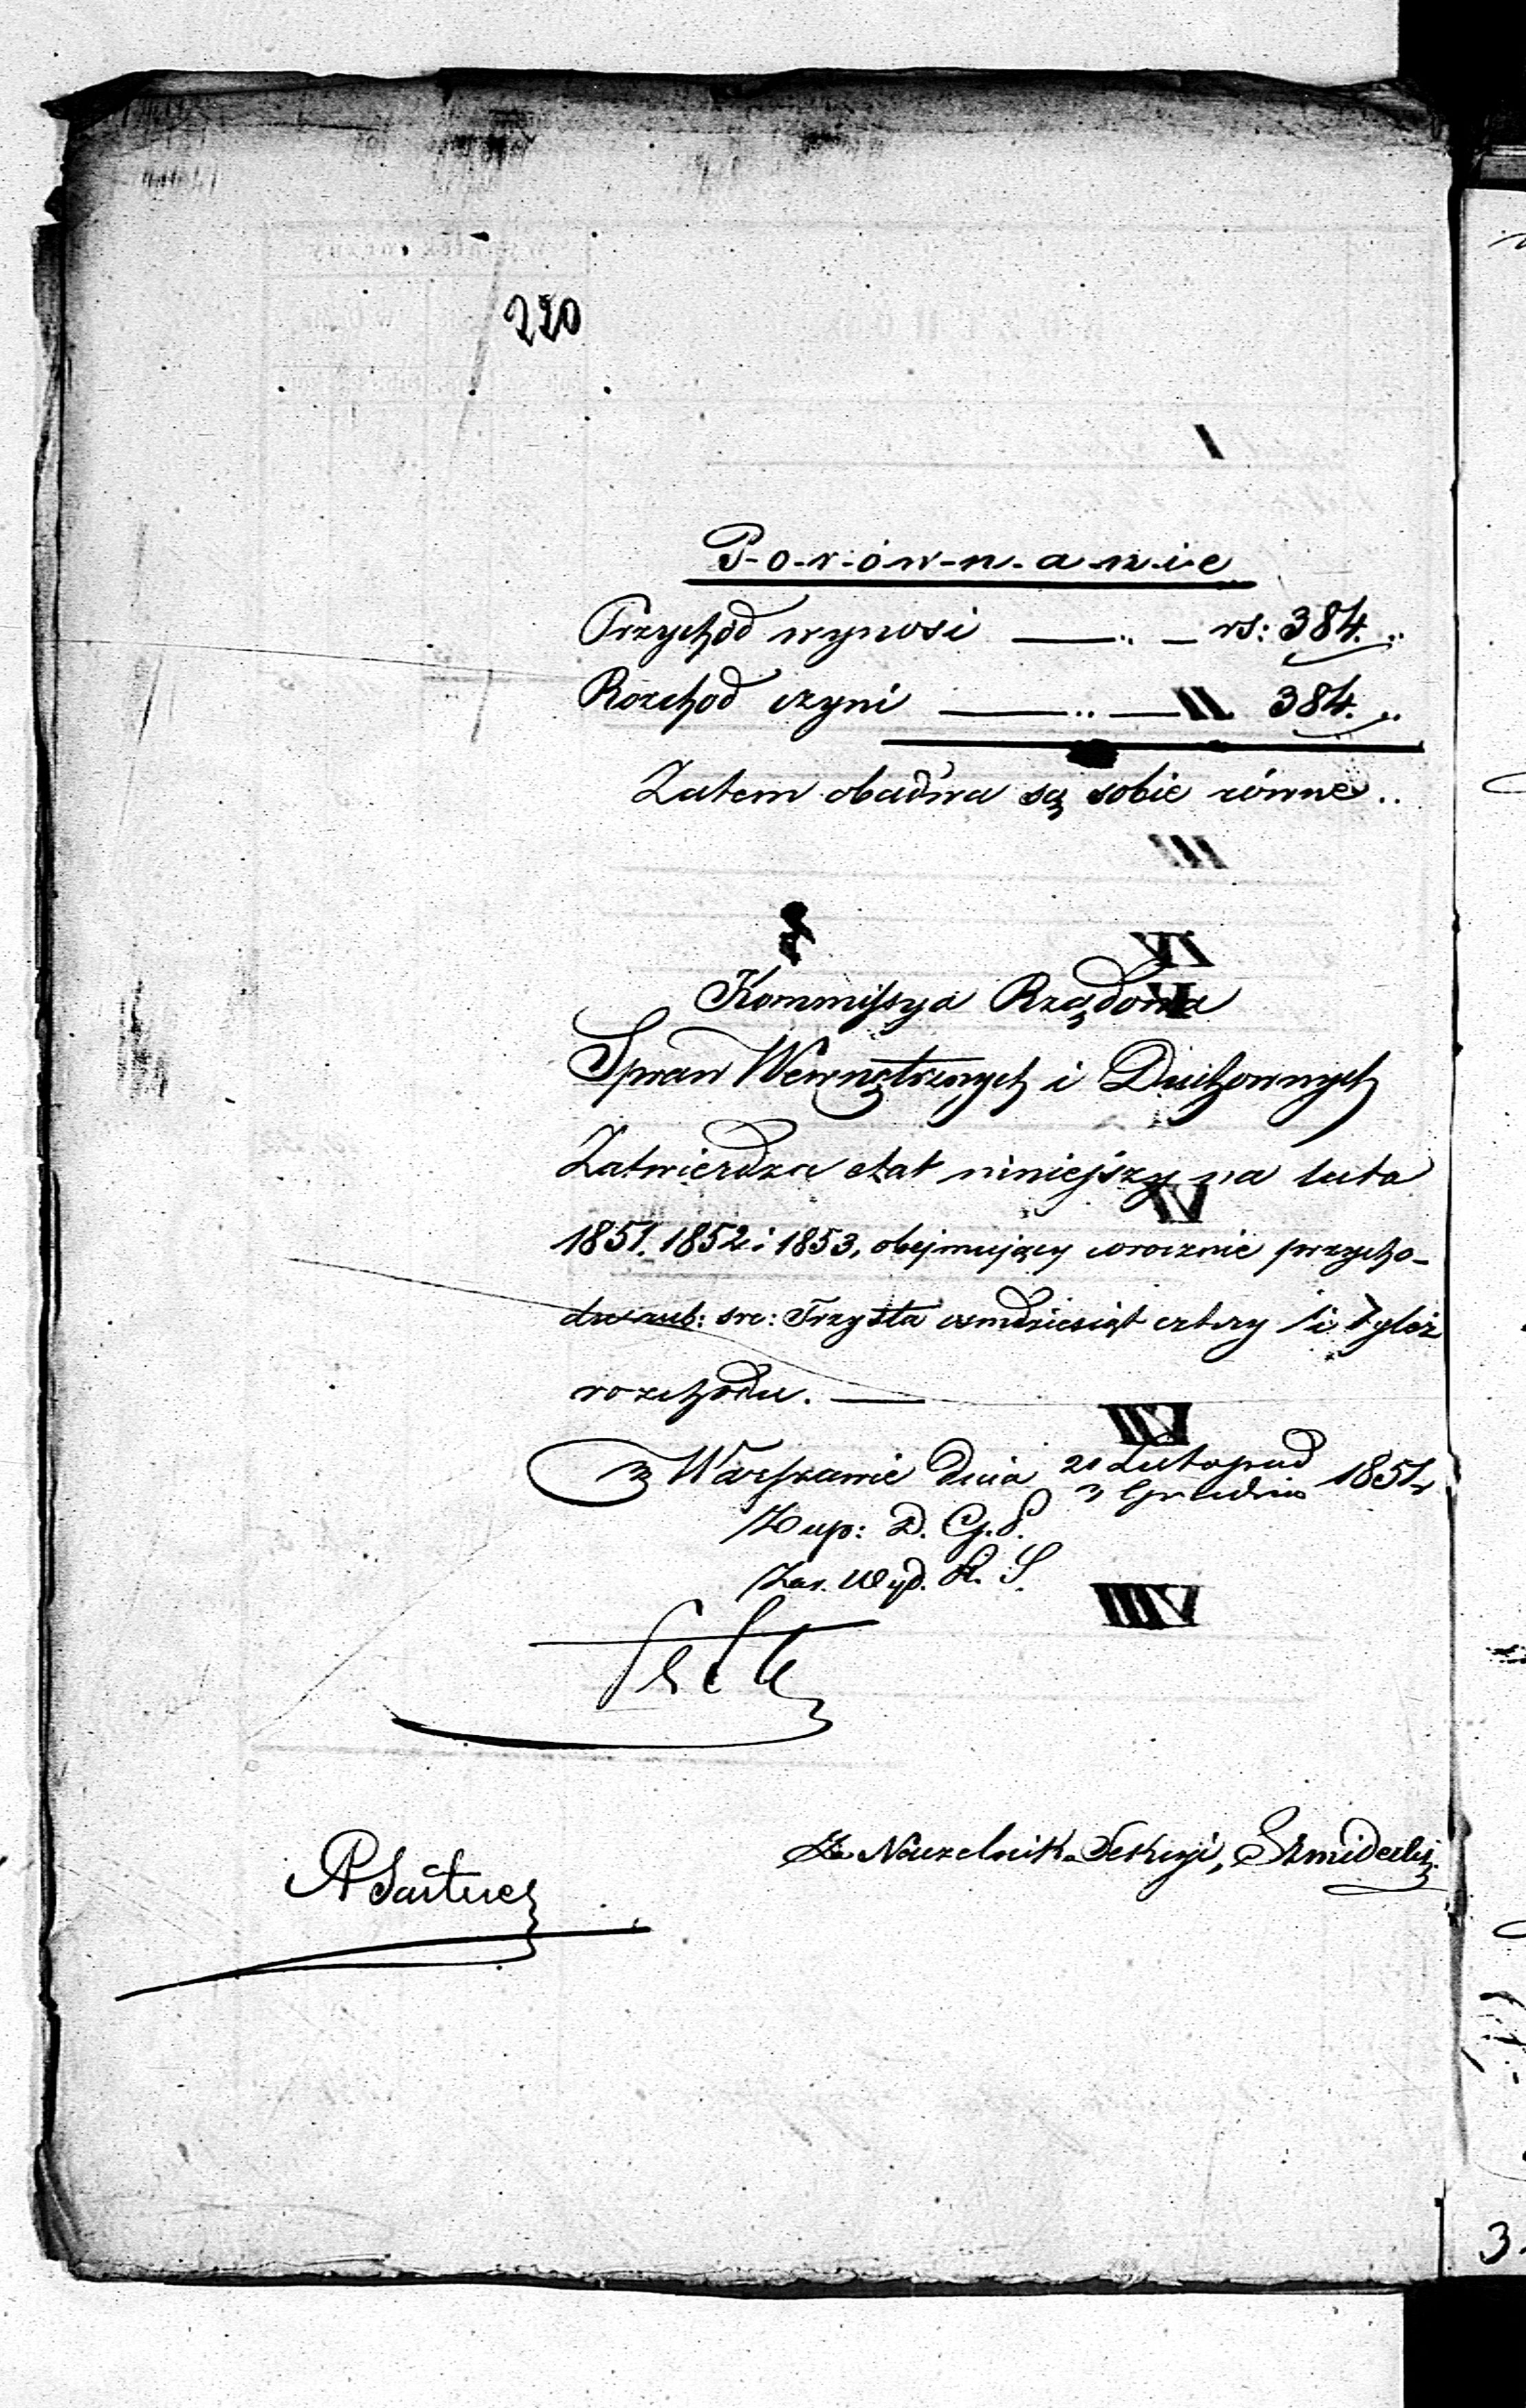 220
P-o-r-ó-w-n-a-n-i-e
Przychód wynosi — „ — rs: 384. „
Rozchod czyni — „ — 384. „
Zatem obadwa są sobie równe „
Kommissya Rządowa
Spraw Wewnętrznych i Duchownych
Zatwierdza etat niniejszy na lata
1851. 1852 i 1853, obejmujący corocznie przycho-
du rub: sre: Trzysta osmdziesiąt cztery / i tyleż
rozchodu. —
w Warszawie dnia 21 Listopad 1851 r
3 Grudnia
Z up: D. G. P.
Zas. Wyd. A. S.
Za Naczelnik Sekcyi,